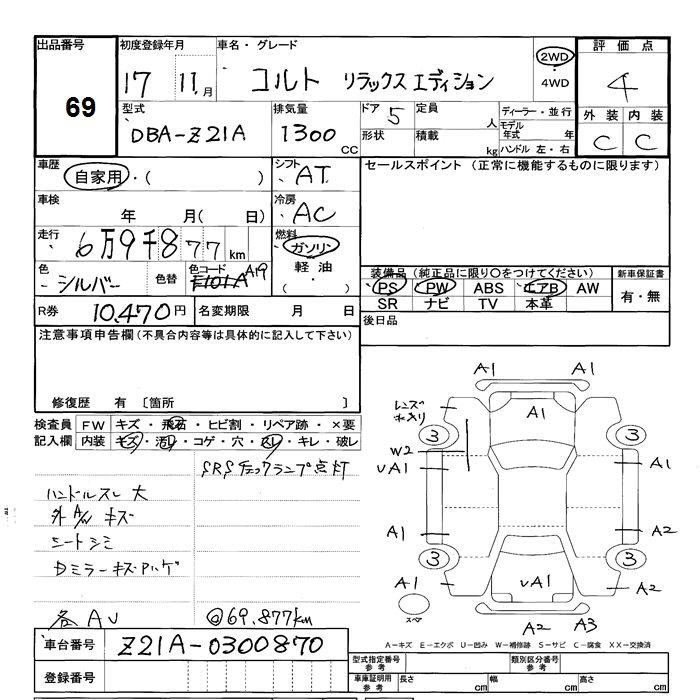 出品番号
69
初度登録年月
17 11月
車名・グレード
コルト リラックスエディション
2WD
・
4WD
評価点
4
外装 内装
C C
型式
DBA-Z21A
排気量
1300
CC
ドア
5
形状
定員
人
積載
kg
ディーラー・並行
モデル年式 年
ハンドル 左・右
車歴
自家用・( )
シフト
AT
セールスポイント(正常に機能するものに限ります)
車検
年 月( 日)
冷房
AC
走行
6万9千877km
燃料
ガソリン
軽油
・( )
色
シルバー
色替
色コード
A19
装備品(純正品に限り〇をつけてください)
PS PW ABS エアB AW
SR ナビ TV 本革
新車保証書
有・無
R券
10,470円
名変期限 月 日
後日品
注意事項申告欄(不具合内容等は具体的に記入して下さい)
修復歴 有〔箇所 〕
検査員記入欄
FW キズ・飛石・ヒビ割・リペア跡・×要
内装 キズ・汚レ・コゲ・穴・スレ・キレ・破レ
SRSチェックランプ点灯
ハンドルスレ 大
外A/W キズ
シートシミ
Dミラーキズハゲ
各AU
@69,877km
A1 A1
A1
レンズ
水入り
3 3
W2
UA1 A1
A1 A2
3 3
A1 UA1 A2
スペア
A2 A3
車台番号
Z21A-0300870
登録番号
A-キズ E-エクボ U-凹み W-補修跡 S-サビ C-腐食 XX-交換済
型式指定番号
参考
類別区分番号
参考
車庫証明用
参考
長さ cm
幅 cm
高さ cm